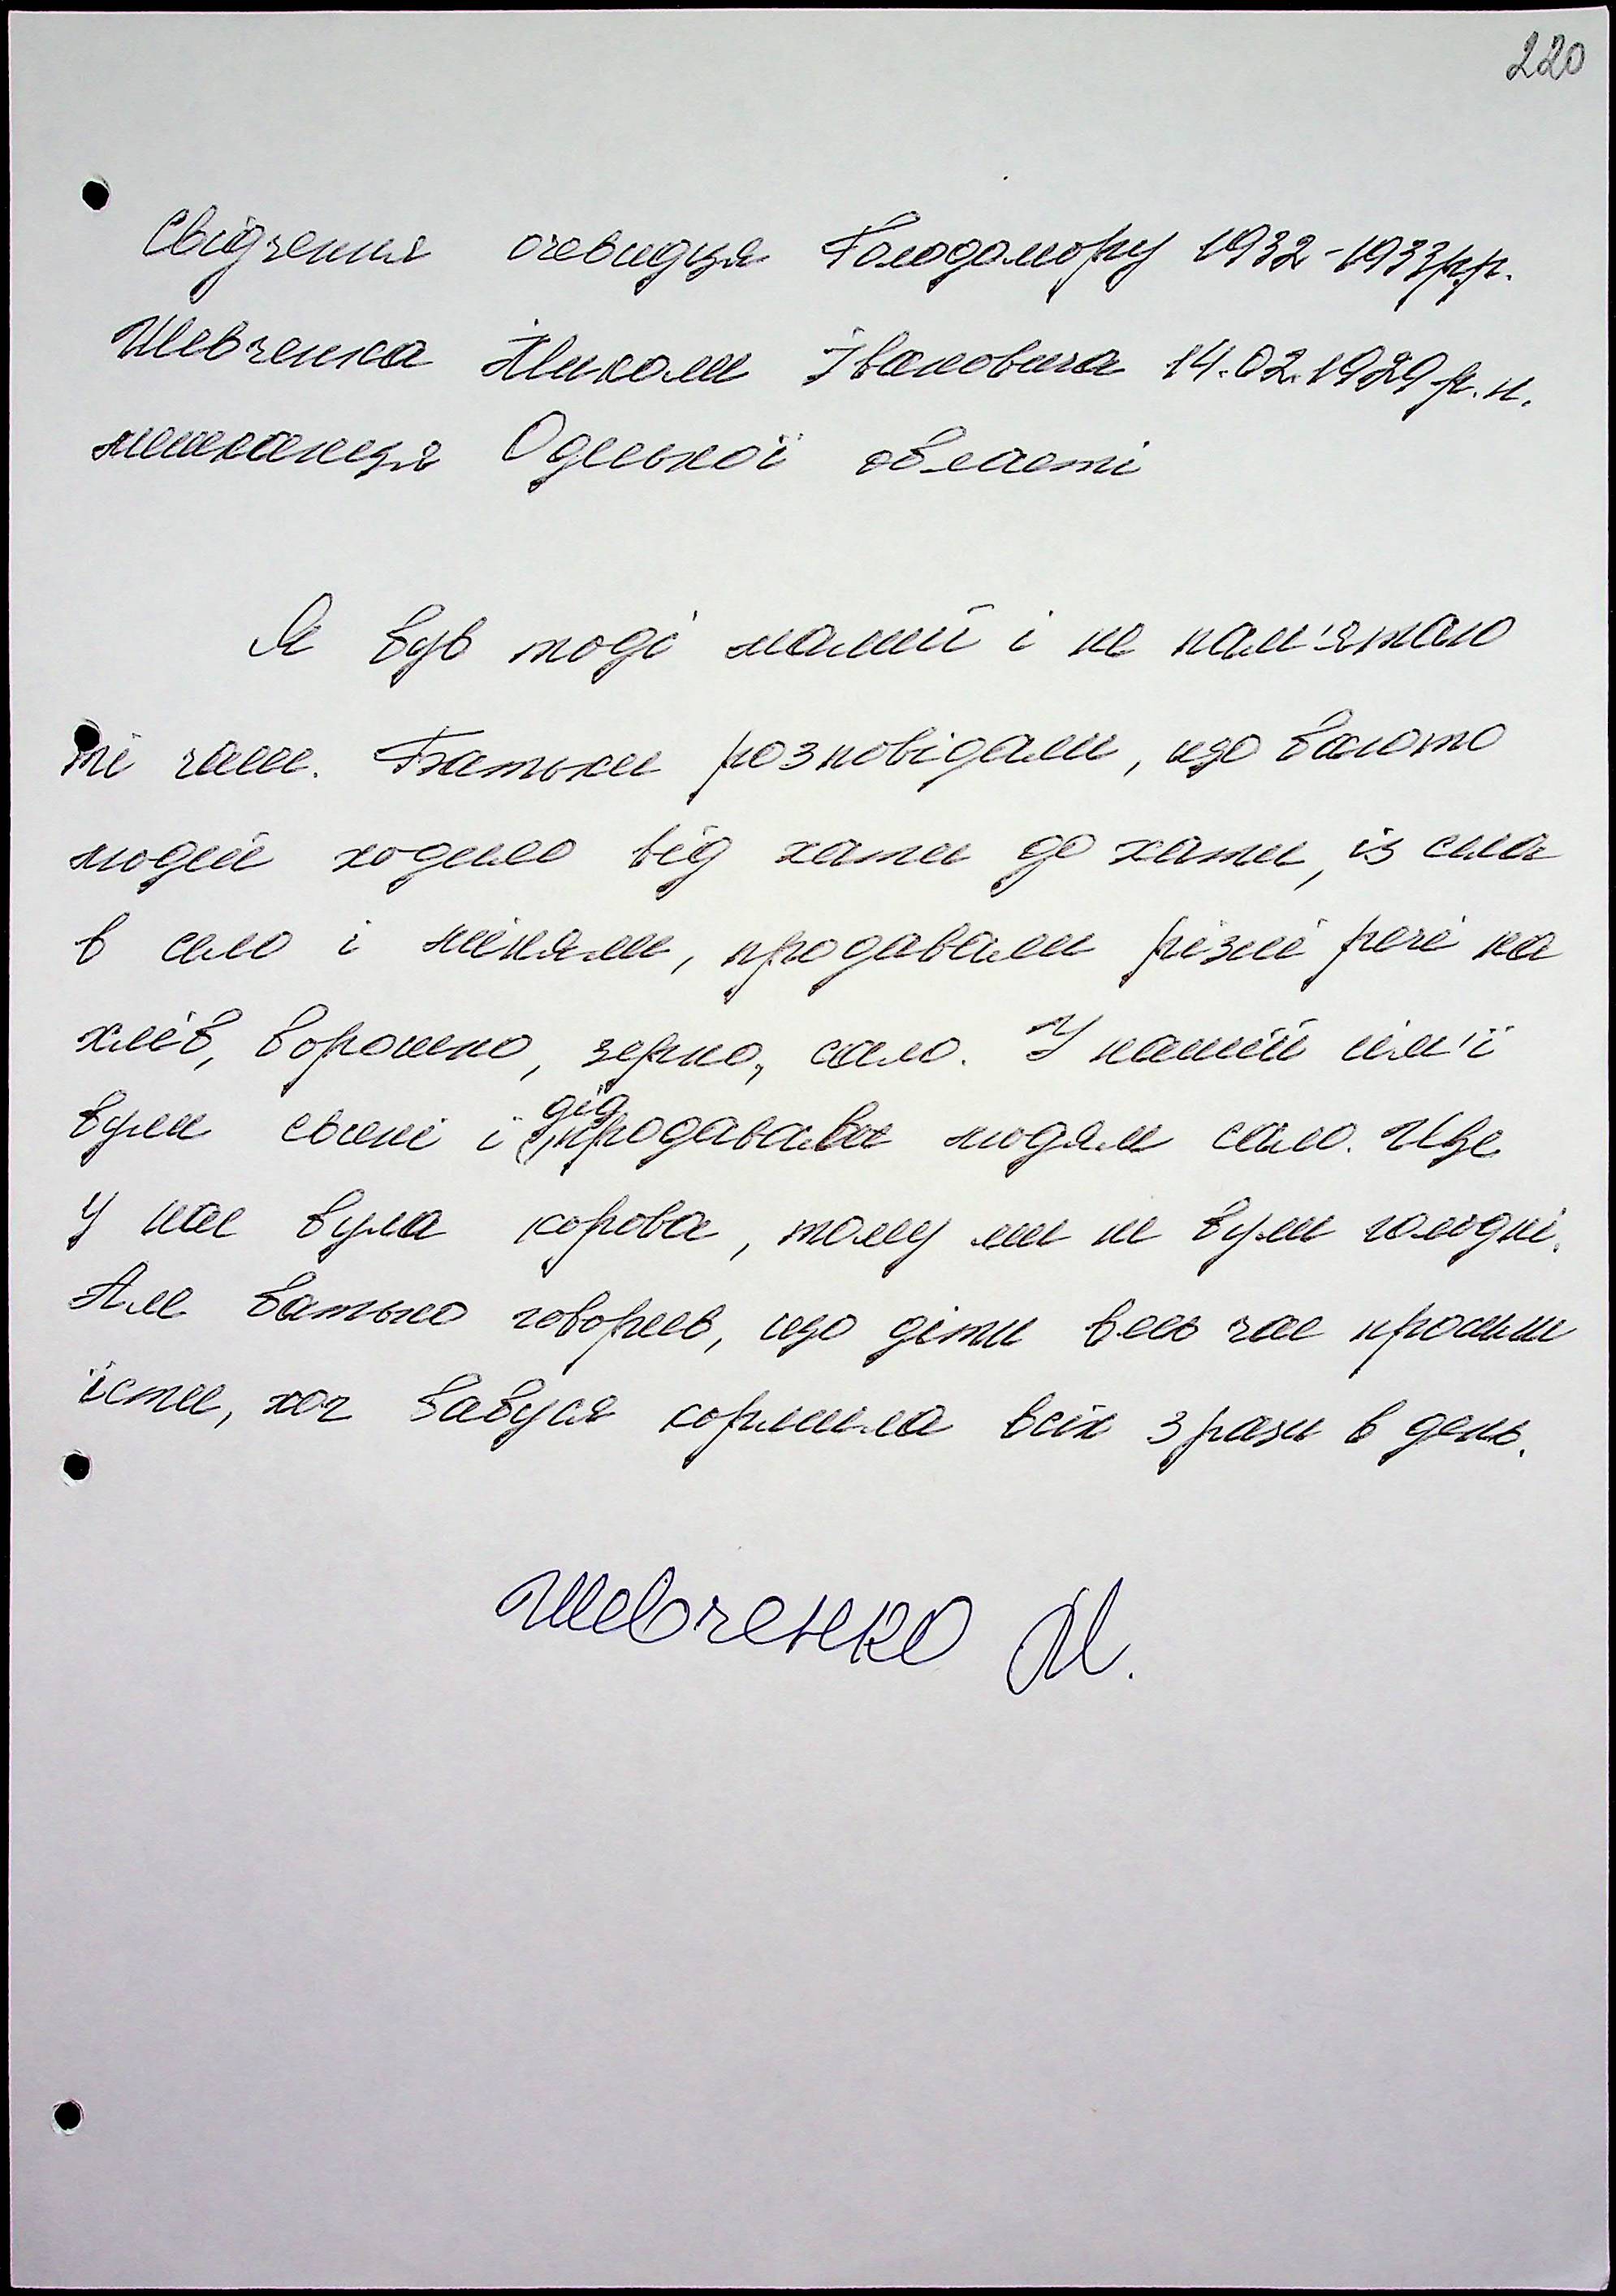 220
Свідчення очевидця Голодомору 1932-1933рр.
Шевченка Миколи Івановича 14.02.1929 р.н.
мешканця Одеської області
Я був тоді малий і не пам'ятаю
ті часи. Батьки розповідали, що багато
людей ходило від хати до хати, із села
в село і міняли, продавали різні речі на
хліб, борошно, зерно, сало. У нашій сім'ї
були свині і дід продавав людям сало. Ще
у нас була корова, тому ми не були голодні.
Але батько говорив, що діти весь час просили
їсти, хоч бабуся кормила всіх 3 рази в день.
Шевченко М.